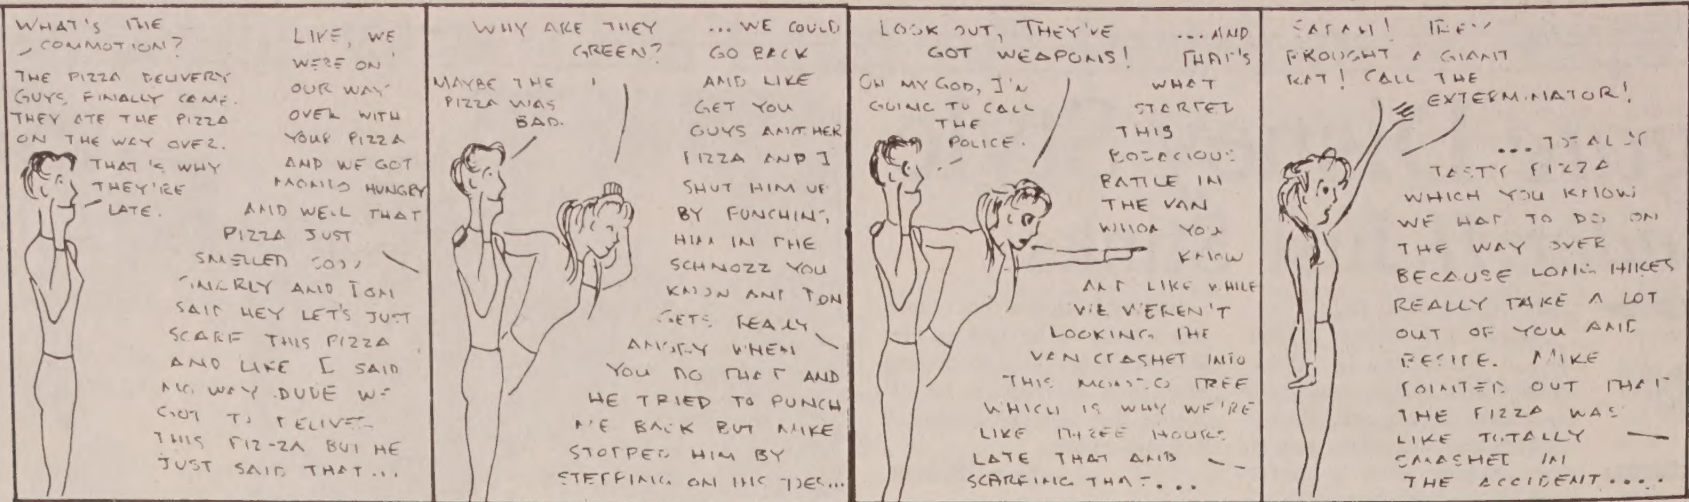 WHAT'S THE
COMMOTION?
THE PIZZA DELIVERY
GUYS FINALLY CAME.
THEY ATE THE PIZZA
ON THE WAY OVER.
THAT'S WHY
THEY'RE
LATE.
LIKE, WE
WERE ON
OUR WAY
OVER WITH
YOUR PIZZA
AND WE GOT
MONDO HUNGRY
AND WELL THAT
PIZZA JUST
SMELLED SOOO
AND TOM
SAID HEY LET'S JUST
SCARF THIS PIZZA
AND LIKE I SAID
NO WAY DUDE WE
GOT TO DELIVER
THIS PIZ-ZA BUT HE
JUST SAID THAT...
WHY ARE THEY
GREEN?
MAYBE THE
PIZZA WAS
BAD.
...WE COULD
GO BACK
AND LIKE
GET YOU
GUYS ANOTHER
PIZZA AND I
SHUT HIM UP
BY PUNCHING
HIM IN THE
SCHNOZZ YOU
KNOW AND TOM
GETS REALLY
ANGRY WHEN
YOU DO THAT AND
HE TRIED TO PUNCH
ME BACK BUT MIKE
STOPPED HIM BY
STEPPING ON HIS TOES...
LOOK OUT, THEY'VE
GOT WEAPONS!
OH MY GOD, I'M
GOING TO CALL
THE
POLICE.
...AND
THAT'S
WHAT
STARTED
THIS
BODACIOUS
BATTLE IN
THE VAN
WHOA YOU
KNOW
AND LIKE WHILE
WE WEREN'T
LOOKING THE
VAN CRASHED INTO
THIS MONDO TREE
WHICH IS WHY WE'RE
LIKE THREE HOURS
LATE THAT AND
SCARFING THAT...
EATAH! THEY
BROUGHT A GIANT
RAT! CALL THE
EXTERMINATOR!
...TOTALLY
TASTY PIZZA
WHICH YOU KNOW
WE HAD TO DO ON
THE WAY OVER
BECAUSE LONG HIKES
REALLY TAKE A LOT
OUT OF YOU AND
BESIDE. MIKE
POINTED OUT THAT
THE PIZZA WAS
LIKE TOTALLY
SMASHED IN
THE ACCIDENT....